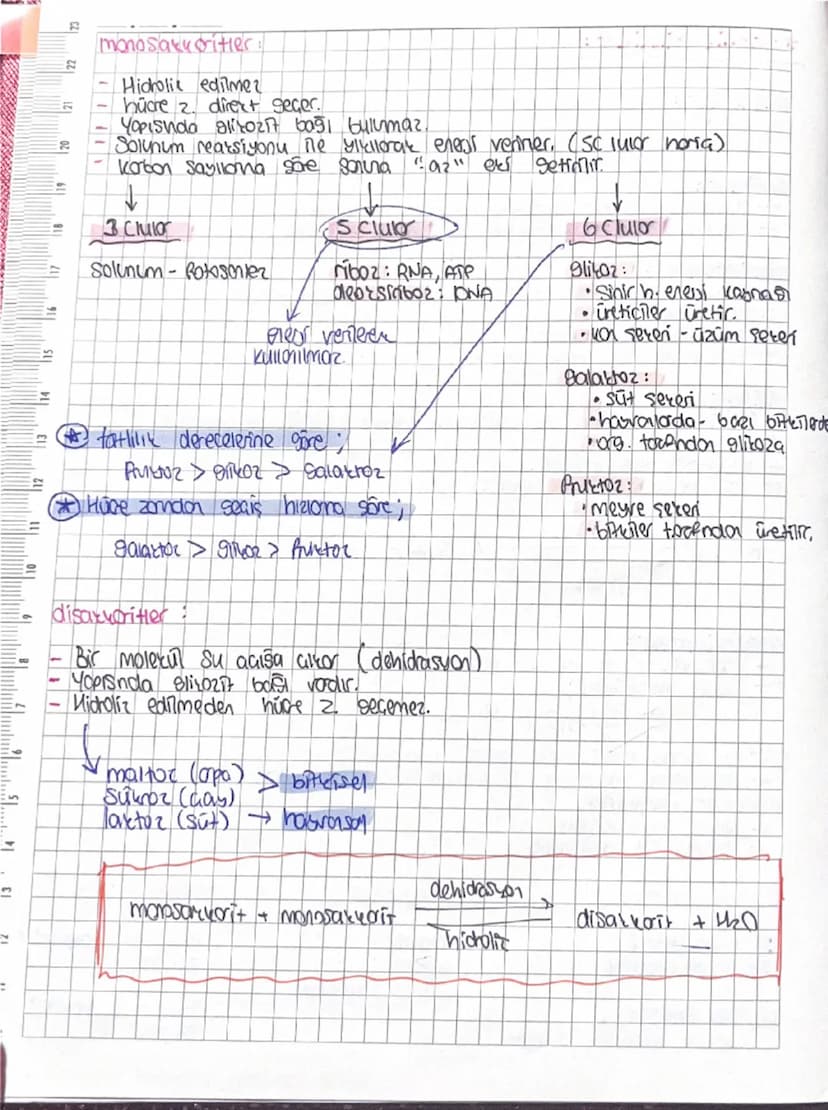 monosakkaritler:
- Hidroliz edilmez
- hücre z. direkt geçer.
- Yapısında glikozit bağı bulunmaz.
- Solunum reaksiyonu ile yıkılarak enerji verirler. (5C lular hariç)
- Karbon sayılarına göre sonuna "-az" eki getirilir.
3 C lular
5 C lular
6 C lular
Solunum - fotosentez
riboz: RNA, ATP
deoksiriboz: DNA
enerji verilerek
kullanılmaz.
glikoz:
• sinir h. enerji kaynağı
• üreticiler üretir.
• kan şekeri - üzüm şekeri
galaktoz:
• süt şekeri
• hayvanlarda - bazı bitkilerde
• org. tarafından glikoza
fruktoz:
• meyve şekeri
• bitkiler tarafından üretilir.
* tatlılık derecelerine göre;
fruktoz > glikoz > galaktoz
* Hücre zarından geçiş hızlarına göre;
galaktoz > glikoz > fruktoz
disakkaritler:
- Bir molekül su açığa çıkar (dehidrasyon)
- Yapısında glikozit bağı vardır.
- Hidroliz edilmeden hücre z. geçemez.
maltoz (arpa) > bitkisel
sükroz (çay)
laktoz (süt) → hayvansal
dehidrasyon
monosakkarit + monosakkarit disakkarit + H2O
hidroliz